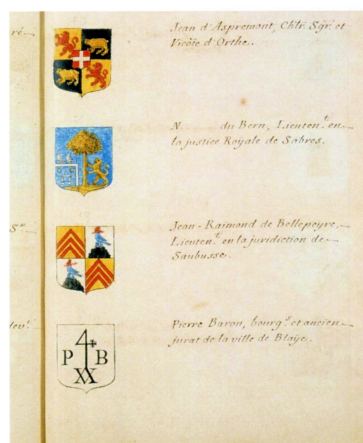 ré
Jean d'Aspremont, Chlr. Sgr. et
Vicõte d'Orthe.
N. du Bern, Lieuten.t en
la justice Royale de Sabres.
Sr
Jean-Raimond de Bellepeyre,
Lieuten.t en la juridiction de
Saubusse.
Pierre Baron, bourg.s et ancien
jurat de la ville de Blaije.
P 4 B
XX